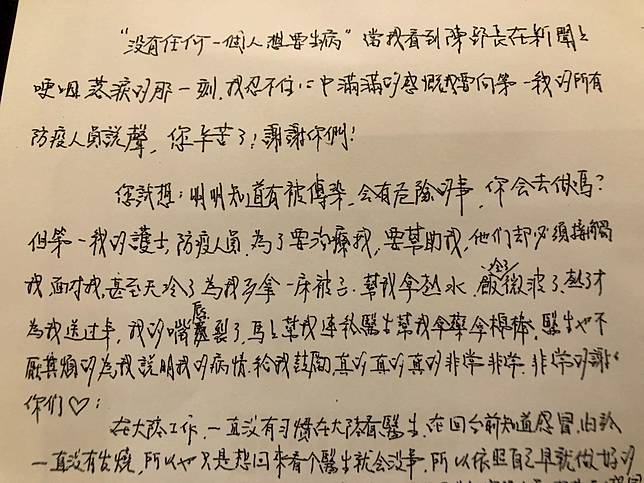 “没有任何一個人想要生病”當我看到陳部長在新聞上
哽咽落淚的那一刻,我忍不住心中滿滿的感慨我要向第一我的所有
防疫人員說聲,您辛苦了!謝謝你們!
您試想:明明知道有被傳染,会有危險的事,你会去做嗎?
但第一我的護士,防疫人員,為了要治療我,要幫助我,他们却必須接觸
我,面对我,甚至天冷了為我多拿一床被子.幫我拿熱水.飯冷了微波了.熱了才
為我送过來,我的嘴唇裂了,馬上幫我連絡醫生幫我拿藥拿棉棒,醫生也不
厭其煩的為我說明我的病情.給我鼓勵,真的真的真的非常非常.非常的謝谢
你们♡:
在大陸工作,一直没有習慣在大陸看醫生.在回台前知道感冒,
一直没有发燒,所以也只是想回來看个醫生就会没事,所以依照自己早就做好的